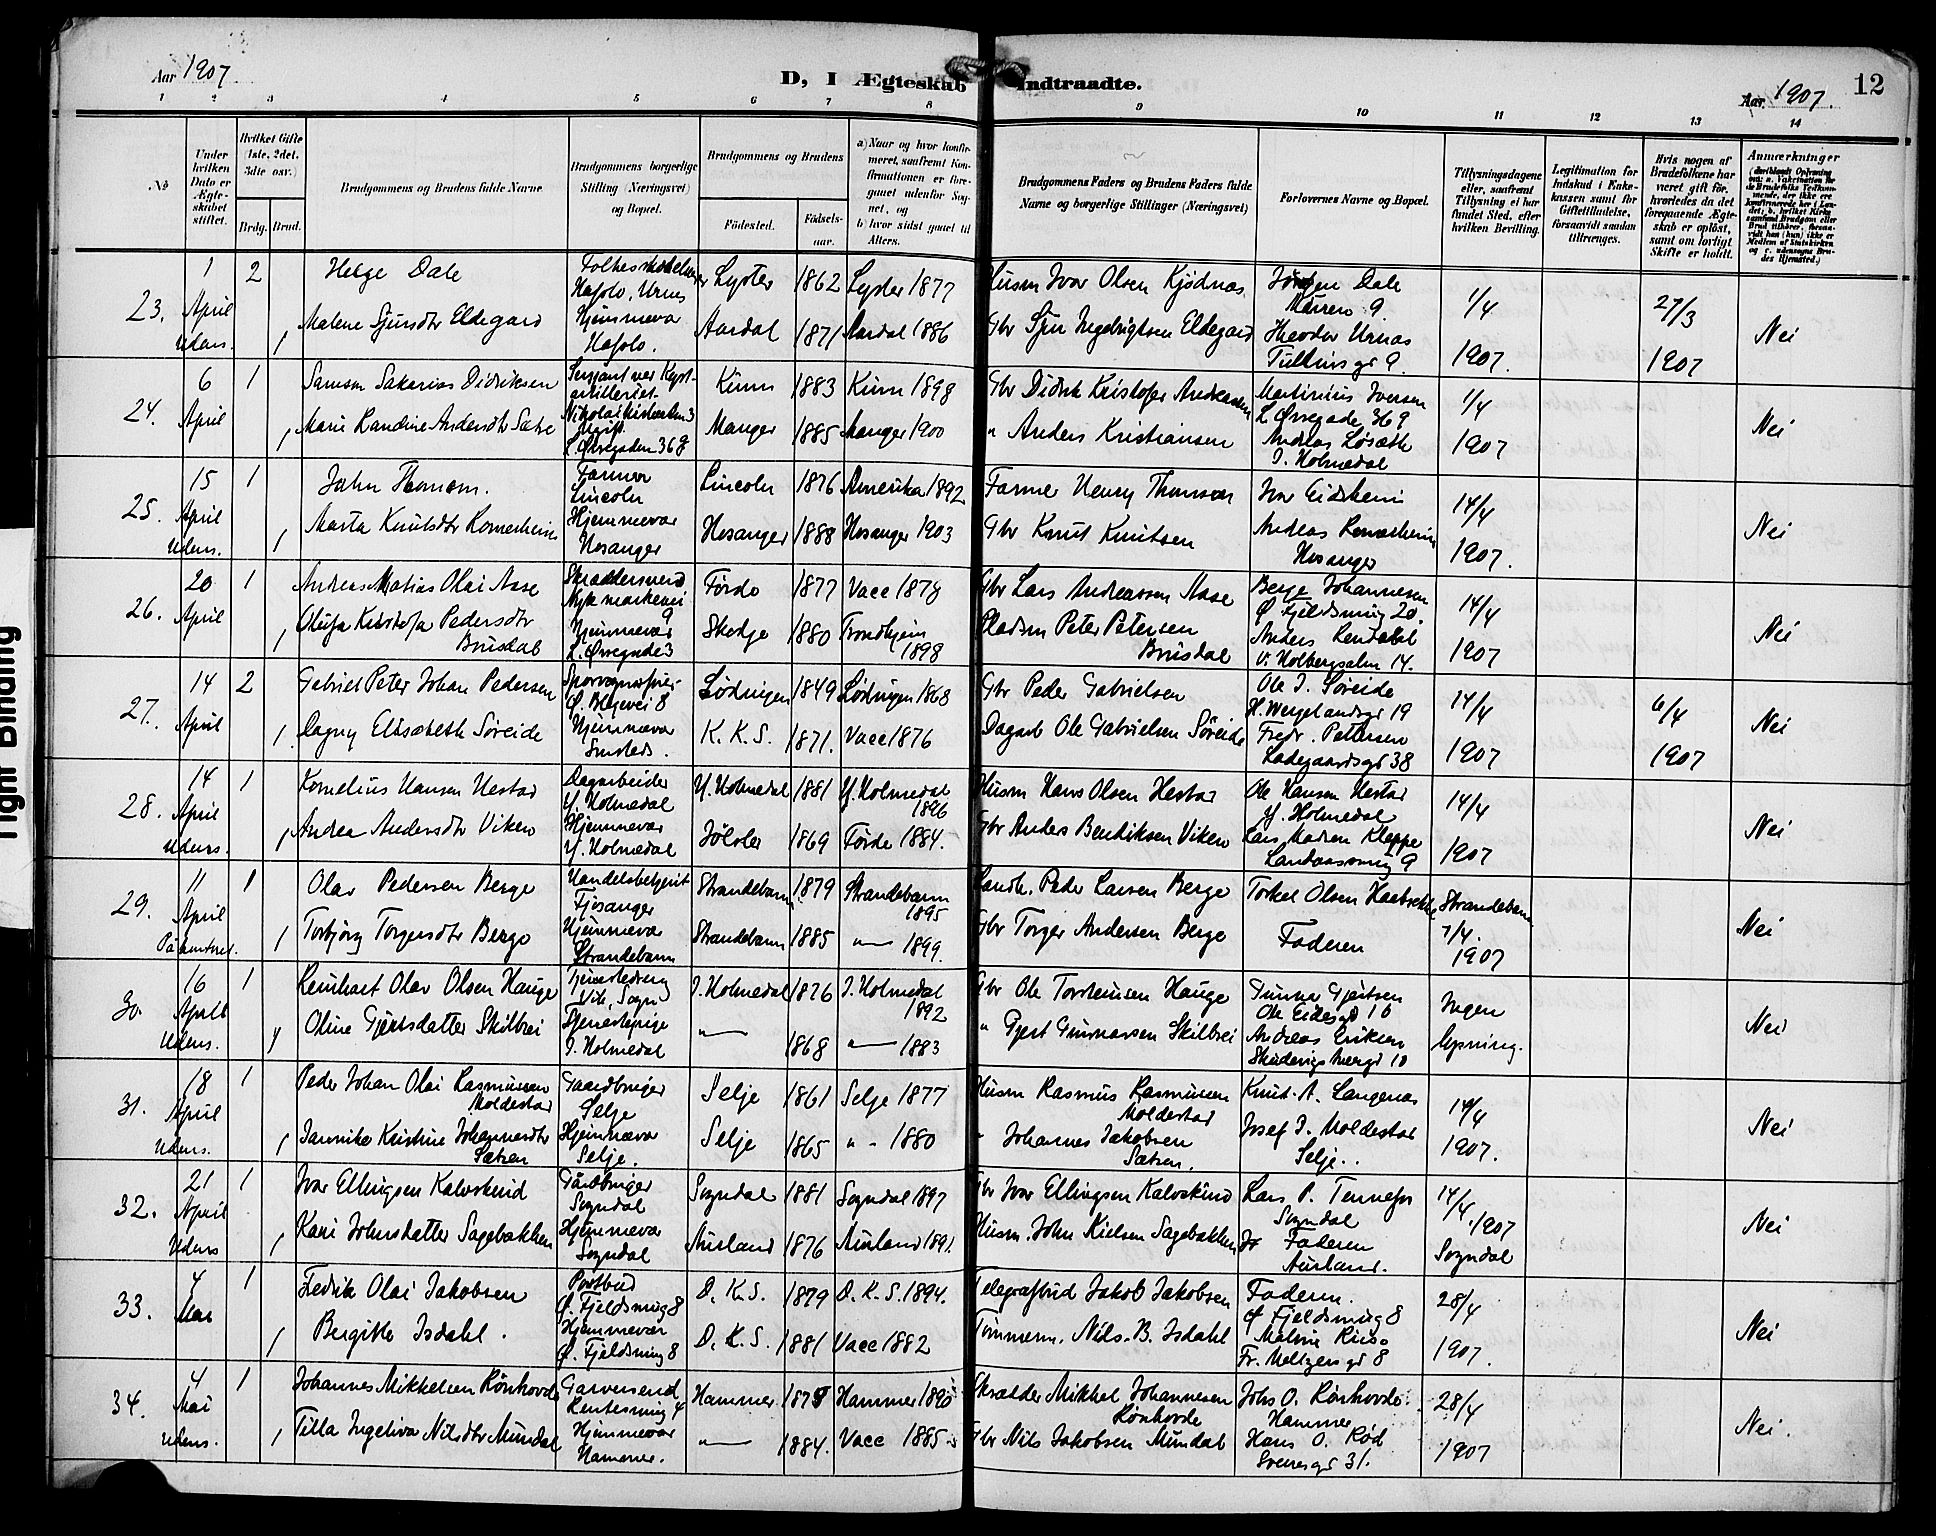 Aar 1907
D, I Ægteskab Indtraadte.
Aar 1907. 12
1 2 3 4 5 6 7 8 9 10 11 12 13 14
No
Under hvilken Dato er Ægteskabet stiftet.
Hvilket Gifte (1ste, 2det, 3die osv.)
Brdg. Brud.
Brudgommens og Brudens fulde Navne
Brudgommens borgerlige Stilling (Næringsvei) og Bopæl.
Brudgommens og Brudens
Fødested. Fødselsaar.
a) Naar og hvor konfirmeret, saafremt Konfirmationen er foregaaet udenfor Sognet, og
b) hvor sidst gaaet til Alters.
Brudgommens Faders og Brudens Faders fulde Navne og borgerlige Stillinger (Næringsvei)
Forlovernes Navne og Bopæl.
Tillysningsdagene eller, saafremt Tillysning ei har fundet Sted, efter hvilken Bevilling.
Legitimation for Indskud i Enkekassen samt for Giftetilladelse, forsaavidt saadan tiltrænges.
Hvis nogen af Brudefolkene har været gift før, hvorledes da det foregaaende Ægteskab er opløst, samt om lovligt Skifte er holdt.
Anmærkninger
23. 1 April Udens. 2 1
Helge Dale
Lyster 1862 Lyster 1877
Husm Ivar Olsen Kjødnas
Dale
1/4 1907.
27/3 1907
Nei
Malene Sjursdtr Eldegard
Hjemmevær Hafslo.
Aardal 1871 Aardal 1886
Gbr Sjur Ingebrigtsen Eldegard
Urnes
Tullinsgd 9.
24. 6 April 1 1
Samson Sakarias Didriksen
Kinn 1883 Kinn 1898
Gbr Didrik Kristofer Andreassen
Martinius Iversen
L. Øvregade 36 9
1/4 1907
Nei
Marie Randine Andersdtr Sætre
L. Øvregaden 36 9
Manger 1885 Manger 1900
" Anders Kristiansen
Andreas Løsæth
I. Holmedal
25. 15 April Udens. 1 1
John Thomson.
Farmer Lincoln
Lincoln 1876 Amerika 1892
Farmer Henry Thomson
Ivar Eidsheim
14/4 1907.
Nei
Marta Knutsdtr Romarheim
Hjemmevær Hosanger
Hosanger 1888 Hosanger 1903
Gbr Knut Knutsen
Andreas Romarheim
Hosanger
26. 20 April 1 1
Andreas Matias Olai Aase
Skræddersvend
Nykmarkevei 9
Førde 1877 Vacc 1878
Gbr Lars Andreassen Aase
Berge Johannesen
Ø Fjeldsmug 20.
14/4 1907
Nei
Olufa Kristofa Pedersdtr Brusdal
Hjemmevær L. Øvregade 3
Skodje 1880 Trondhjem 1898
Pladsm Peter Petersen Brusdal
Anders
V. Holbergsalm 14.
27. 14 April 2 1
Gabriel Peter Johan Pedersen
Lødingen 1849 Lødingen 1868
Gbr Peder Gabrielsen
Ole J. Søreide
H. Wergelandsgd 19
14/4 1907
6/4 1907
Nei
Dagny Elisabeth Søreide
Hjemmevær
K. K. S. 1871. Vacc 1876
Dagarb Ole Gabrielsen Søreide
Fredr. Pettersen
Ladegaardsgd 38
28. 14 April Udens. 1 1
Kornelius Hansen Hestad
Dagarbeider Y. Holmedal
Y. Holmedal 1881 Y. Holmedal 1896
Husm Hans Olsen Hestad
Ole Hansen Hestad
Y. Holmedal
14/4 1907
Nei
Andrea Andersdtr Viken
Hjemmevær Y. Holmedal
Jølster 1869 Førde 1884.
Gbr Anders Bendiksen Viken
Lars Madsen Kleppe
Landaasmug 9
29. 11 April 1 1
Olav Pedersen Berge
Handelsbetjent Fjøsanger
Strandebarm 1879 Strandebarm 1895
Landh. Peder Larsen Berge
Torkel Olsen
Strandebarm 7/4 1907
Nei
Torbjørg Torgersdtr Berge
Hjemmevær Strandebarm
Strandebarm 1885 " 1899.
Gbr Torger Andersen Berge
Faderen
30. 16 April Udens. 1 1
Reinhart Olav Olsen Hauge
Vik, Sogn
I. Holmedal 1876 I. Holmedal 1892
Gbr Ole Torsteinsen Hauge
Gunnar Gjertsen
Ole Eidesgd 10
Ingen lysning.
Nei
Oline Gjertsdatter Skilbrei
Tjenestepige I. Holmedal
" 1868 " 1883
" Gjert Gunnarsen Skilbrei
Andreas Eriksen
31. 18 April Udens. 1 1
Peder Johan Olai Rasmussen Moldestad
Gaardbruger Selje
Selje 1861 Selje 1877
Husm Rasmus Rasmussen Moldestad
Knut A. Langenæs
14/4 1907.
Nei
Jannike Kristine Johannesdtr Sætren
Hjemmevær Selje.
Selje 1865 " 1880
" Johannes Jakobsen Sætren.
Josef J. Moldestad
Selje.
32. 21 April Udens 1 1
Ivar Ellingsen Kalvskind
Gårdbruger Sogndal
Sogndal 1881 Sogndal 1897
Gbr Ivar Ellingsen Kalvskind
Lars P.
Sogndal
14/4 1907
Sogndal
Nei
Kari Johnsdatter Sagebakken
Hjemmevær Sogndal
Aurland 1876 Aurland 1891.
Husm. John Nielsen Sagebakken
Faderen
Aurland.
33. 4 Mai 1 1
Fredrik Olai Jakobsen
Postbud Ø. Fjeldsmug 8
D. K. S. 1879 D. K. S. 1894.
Telegrafbud Jakob Jakobsen
Faderen.
Ø Fjeldsmug 8
28/4 1907.
Nei
Bergitte Isdahl.
Hjemmevær Ø. Fjeldsmug 8
D. K. S. 1881 Vacc 1882
Tømmerm. Nils B. Isdahl
Fr. Meltzersgd 8
34. 4 Mai Udens. 1 1
Johannes Mikkelsen Rønhovde
Garversvend Rentesmug 4
Hammer 1875 Hammer 1890
Skrædder Mikkel Johannesen Rønhovde
Johs O. Rønhovde
Hammer
28/4 1907
Nei.
Tilla Ingeliva Nilsdtr Mundal
Hjemmevær Hammer.
" 1884. Vacc 1885
Gbr Nils Jakobsen Mundal
Hans O. Rød
Sverresgd 31.
Tight Binding